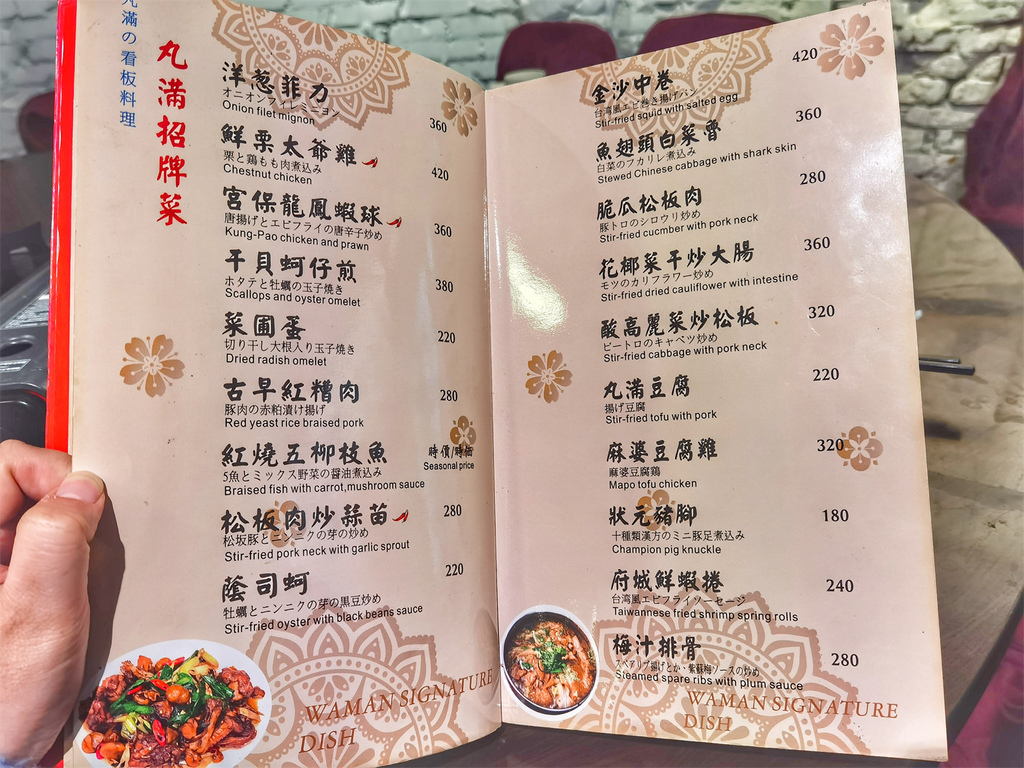 丸滿の看板料理
丸滿招牌菜
洋葱菲力
オニオンフィレミニヨン
Onion filet mignon
360
鮮栗太爺雞
栗と鶏もも肉煮込み
Chestnut chicken
420
宮保龍鳳蝦球
唐揚げとエビフライの唐辛子炒め
Kung-Pao chicken and prawn
360
干貝蚵仔煎
ホタテと牡蠣の玉子焼き
Scallops and oyster omelet
380
菜圃蛋
切り干し大根入り玉子焼き
Dried radish omelet
220
古早紅糟肉
豚肉の赤粕漬け揚げ
Red yeast rice braised pork
280
紅燒五柳枝魚
5魚とミックス野菜の醤油煮込み
Braised fish with carrot,mushroom sauce
時價/時価
Seasonal price
松板肉炒蒜苗
松坂豚とニンニクの芽の炒め
Stir-fried pork neck with garlic sprout
280
蔭司蚵
牡蠣とニンニクの芽の黒豆炒め
Stir-fried oyster with black beans sauce
220
WAMAN SIGNATURE
DISH
金沙中卷
台湾風エビ巻き揚げパン
Stir-fried squid with salted egg
420
魚翅頭白菜膋
白菜のフカリレ煮込み
Stewed Chinese cabbage with shark skin
360
脆瓜松板肉
豚トロのシロウリ炒め
Stir-fried cucmber with pork neck
280
花椰菜干炒大腸
モツのカリフラワー炒め
Stir-fried dried cauliflower with intestine
360
酸高麗菜炒松板
ピートロのキャベツ炒め
Stir-fried cabbage with pork neck
320
丸滿豆腐
揚げ豆腐
Stir-fried tofu with pork
220
麻婆豆腐雞
麻婆豆腐鶏
Mapo tofu chicken
320
狀元豬腳
十種類漢方のミニ豚足煮込み
Champion pig knuckle
180
府城鮮蝦捲
台湾風エビフライソーセージ
Taiwannese fried shrimp spring rolls
240
梅汁排骨
スペアリブ揚げとか・紫蘇梅ソースの炒め
Steamed spare ribs with plum sauce
280
WAMAN SIGNATURE
DISH